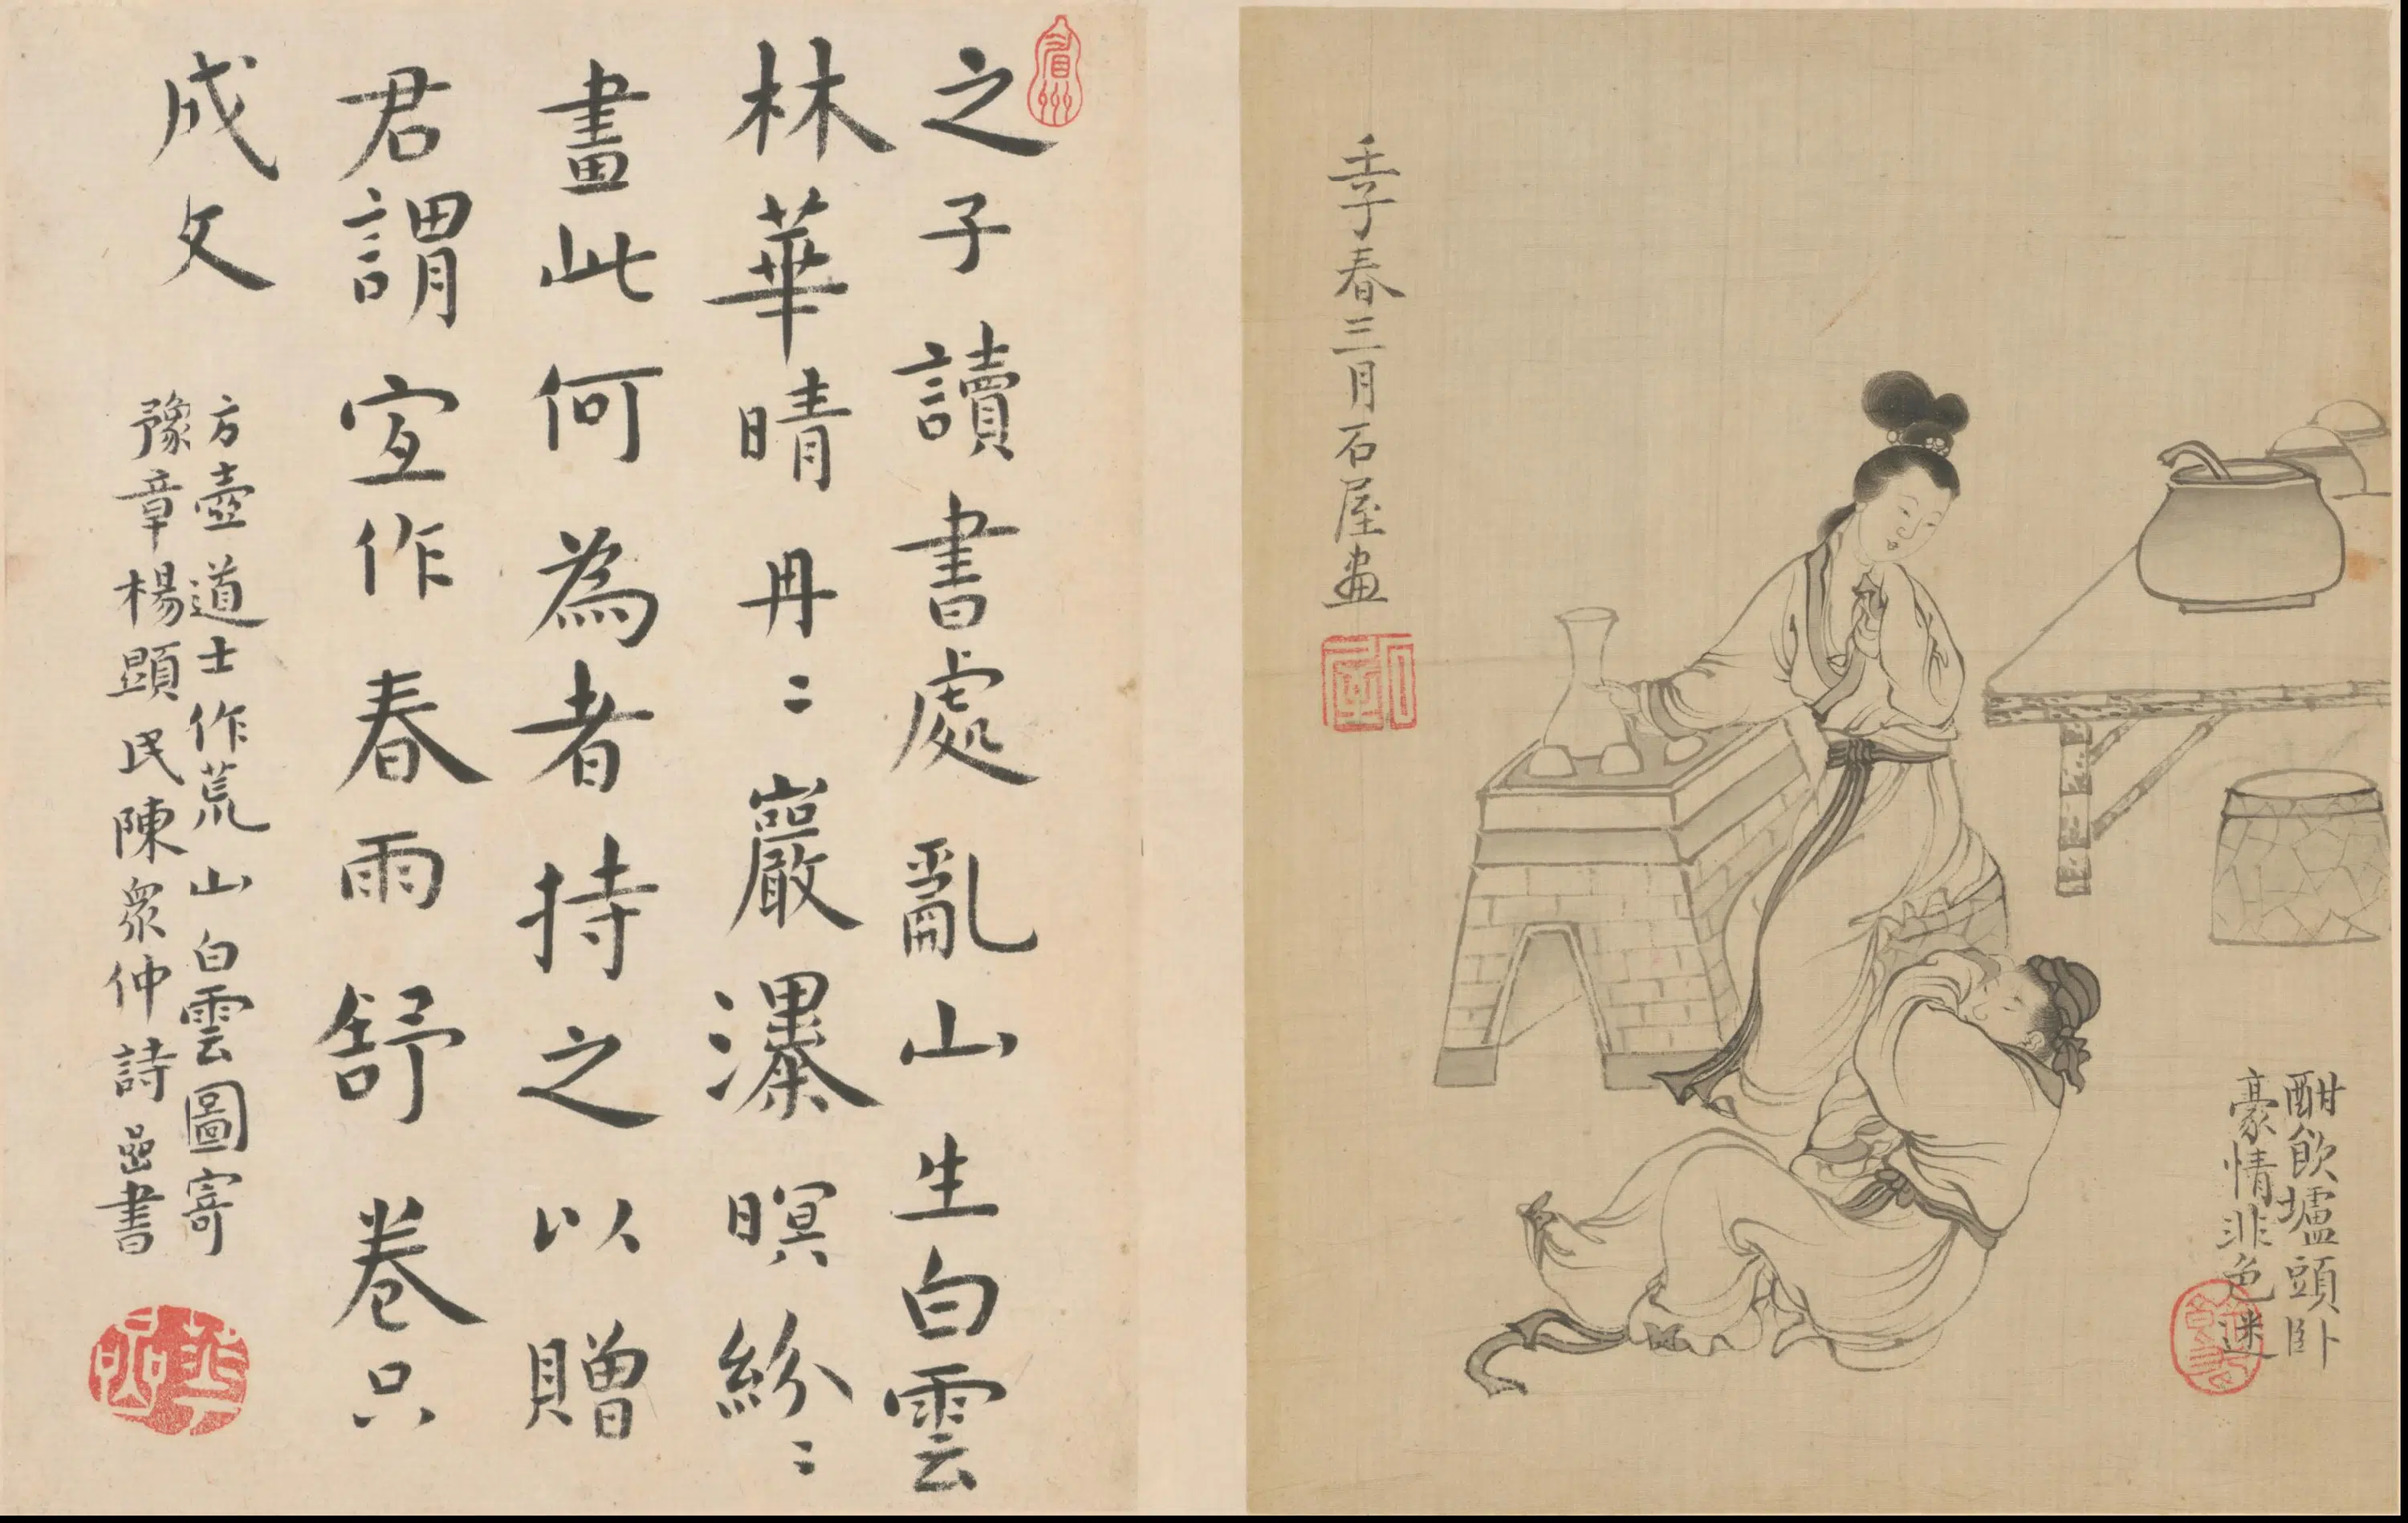 酣飲壚頭卧
豪情非色迷
壬子春三月石屋畫
石屋
之子讀書處亂山生白雲
林華晴冉〻巖瀑暝紛〻
畫此何為者持之以贈
君謂宜作春雨舒卷只
成文
方壺道士作荒山白雲圖寄
豫章楊顯民陳衆仲詩嵒書